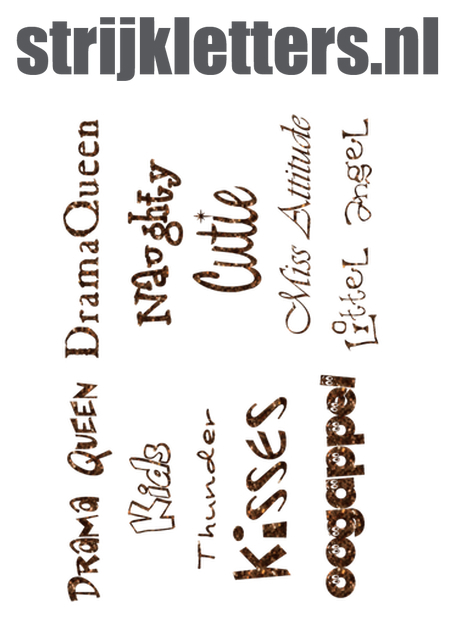 strijkletters.nl
Drama Queen
Naughty
Cutie
Miss Attitude
Littel angel
Drama Queen
Kids
Thunder
Kisses
oogappel